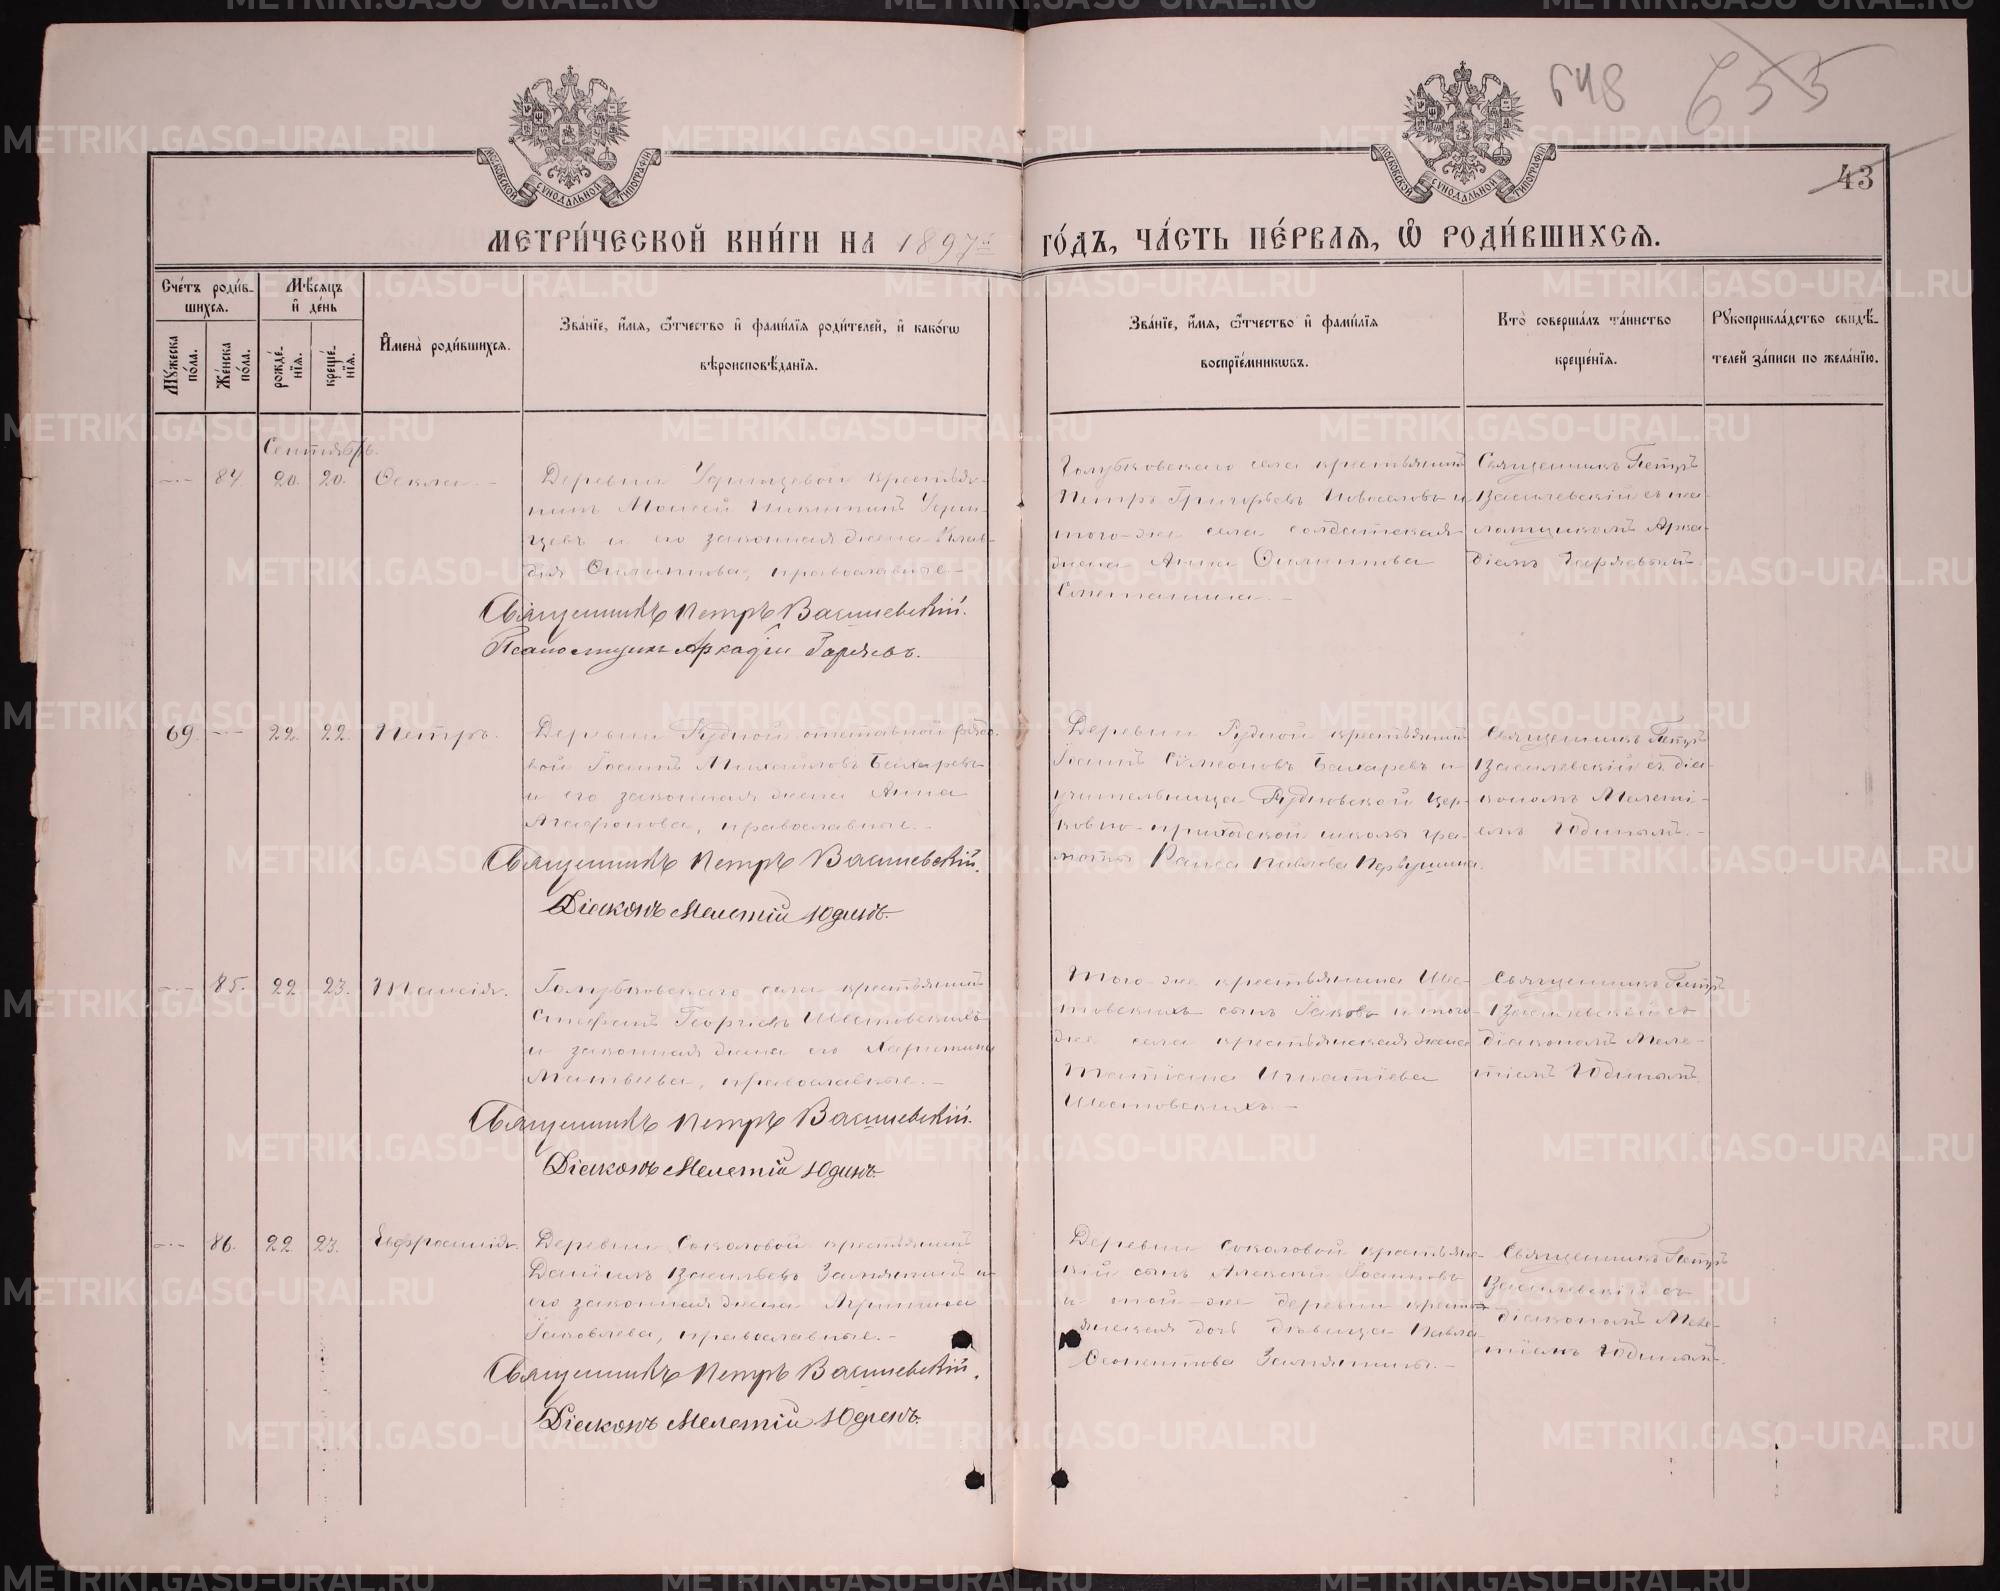 648 655
43
МОСКОВСКОЙ СѴНОДАЛЬНОЙ ТИПОГРАФІИ
МОСКОВСКОЙ СѴНОДАЛЬНОЙ ТИПОГРАФІИ
МЕТРИ́ЧЕСКОЙ КНИ́ГИ НА 1897й ГО́ДЪ, ЧА́СТЬ ПЕ́РВАЯ, Ѡ РОДИ́ВШИХСЯ.
Сче́тъ роди́в-
шихся.
Му́жеска по́ла.
Же́нска по́ла.
Мѣ́сяцъ
и҆ де́нь
рожде́-
нїя.
креще́-
нїя.
И҆мена̀ роди́вшихся.
Зва́нїе, и҆́мя, ѻ҆́тчество и҆ фами́лїя роди́телей, и҆ како́гѡ
вѣроисповѣ́данїя.
Зва́нїе, и҆́мя, ѻ҆́тчество и҆ фами́лїя
воспрїе́мникѡвъ.
Кто̀ соверша́лъ та́инство
креще́нїя.
Рꙋкоприкла́дство свидѣ́-
телей за́писи по жела́нїю.
Сентябрь.
84 20. 20. Ѳекла.
Деревни крестья-
нинъ Моисей Никитинъ
и его законная жена Клав-
дія Филиппова, православные
Священникъ Петръ Василевскій.
Псаломщикъ Аркадій Гаряевъ.
Голубковскаго села крестьянинъ
Петръ Григорьевъ Новоселовъ и
того-же села солдатская
жена Анна Филиппова
Священникъ Петръ
Василевскій съ пса-
ломщикомъ Арка-
діемъ Гаряевымъ.
69. 22. 22. Петръ.
Деревни Рудной отставной рядо-
вой Іоаннъ Михаиловъ Бахаревъ
и его законная жена Анна
Агафонова, православные.
Священникъ Петръ Василевскій.
Діаконъ Мелетій Юдинъ.
Деревни Рудной крестьянинъ
Іоаннъ Симеоновъ Бахаревъ и
учительница Рудновской цер-
ковно-приходской школы гра-
моты Раиса Павлова Первушина.
Священникъ Петръ
Василевскій съ діа-
кономъ Мелеті-
емъ Юдинымъ.
85. 22. 23. Таисія.
Голубковскаго села крестьянинъ
Стефанъ Георгіевъ Шестовскихъ
и законная жена его Харитина
Матвѣева, православные.
Священникъ Петръ Василевскій.
Діаконъ Мелетій Юдинъ.
Того-же крестьянина Шес-
товскихъ сынъ Іаковъ и того-
же села крестьянская жена
Татіана Игнатіева
Шестовскихъ.
Священникъ Петръ
Василевскій съ
діакономъ Меле-
тіемъ Юдинымъ.
86. 22. 23. Евфросинія.
Деревни Соколовой крестьянинъ
Даніилъ Васильевъ Замятинъ и
его законная жена Агриппина
Іаковлева, православные.
Священникъ Петръ Василевскій.
Діаконъ Мелетій Юдинъ.
Деревни Соколовой крестьянс-
кій сынъ Алексій Іоанновъ
и той-же деревни кресть-
янская дочь дѣвица Павла
Леонтіева Замятины.
Священникъ Петръ
Василевскій съ
діакономъ Меле-
тіемъ Юдинымъ.
METRIKI.GASO-URAL.RU